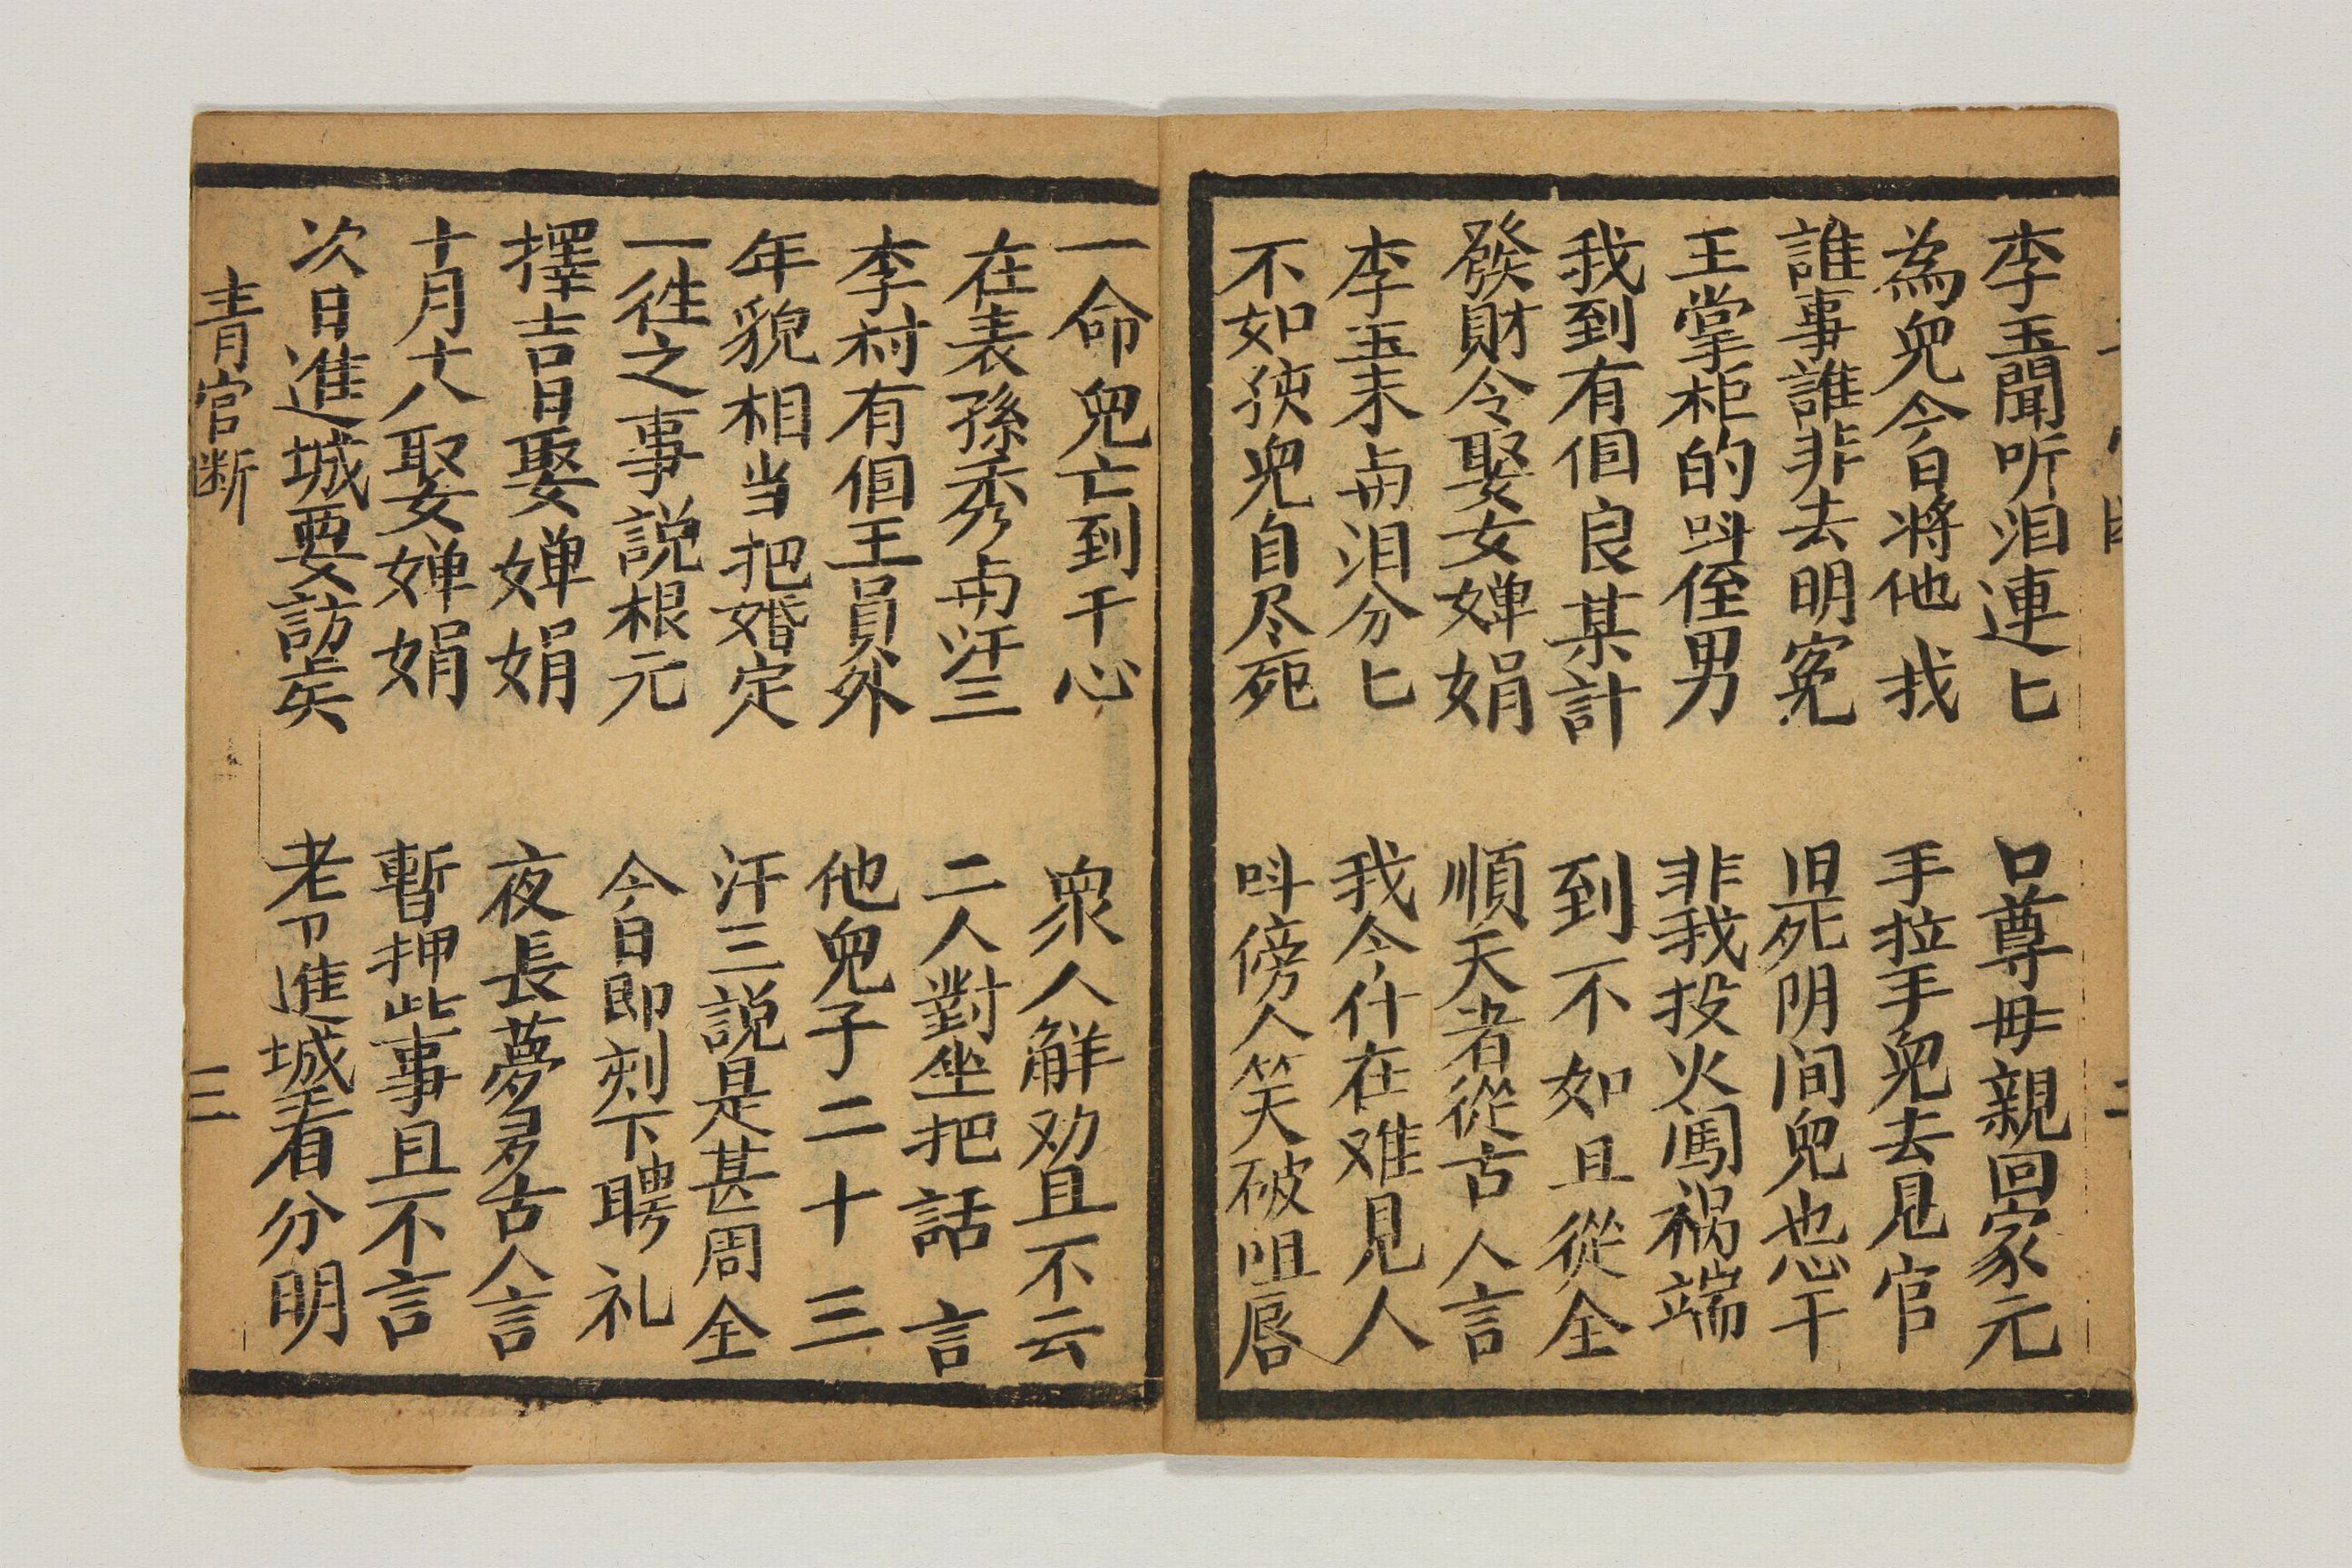 李玉聞听泪連匕
口尊毋親回家元
為児今日将他找
手拉手児去見官
誰事誰非去明寃
旧死阴间児也忿干
王掌柜的呌侄男
非我投火闯祸端
我到有個良某計
到不如且從全
發財令娶女婵娟
順天者從古人言
李玉未㪽泪分匕
我今什在难見人
不如使児自尽死
呌傍人笑破咀唇
一命児亡到干心
衆人觧劝且不云
在表孫秀㪽汗三
二人對坐把話言
李村有個王員外
他児子二十三
年貌相当把婚定
汗三説是甚周全
一徃之事説根元
今日即刻下聘礼
擇吉日娶婵娟
夜長夢多古人言
十月十八娶婵娟
暫押此事且不言
次日進城要訪矣
老卩進城看分明
青官断
三